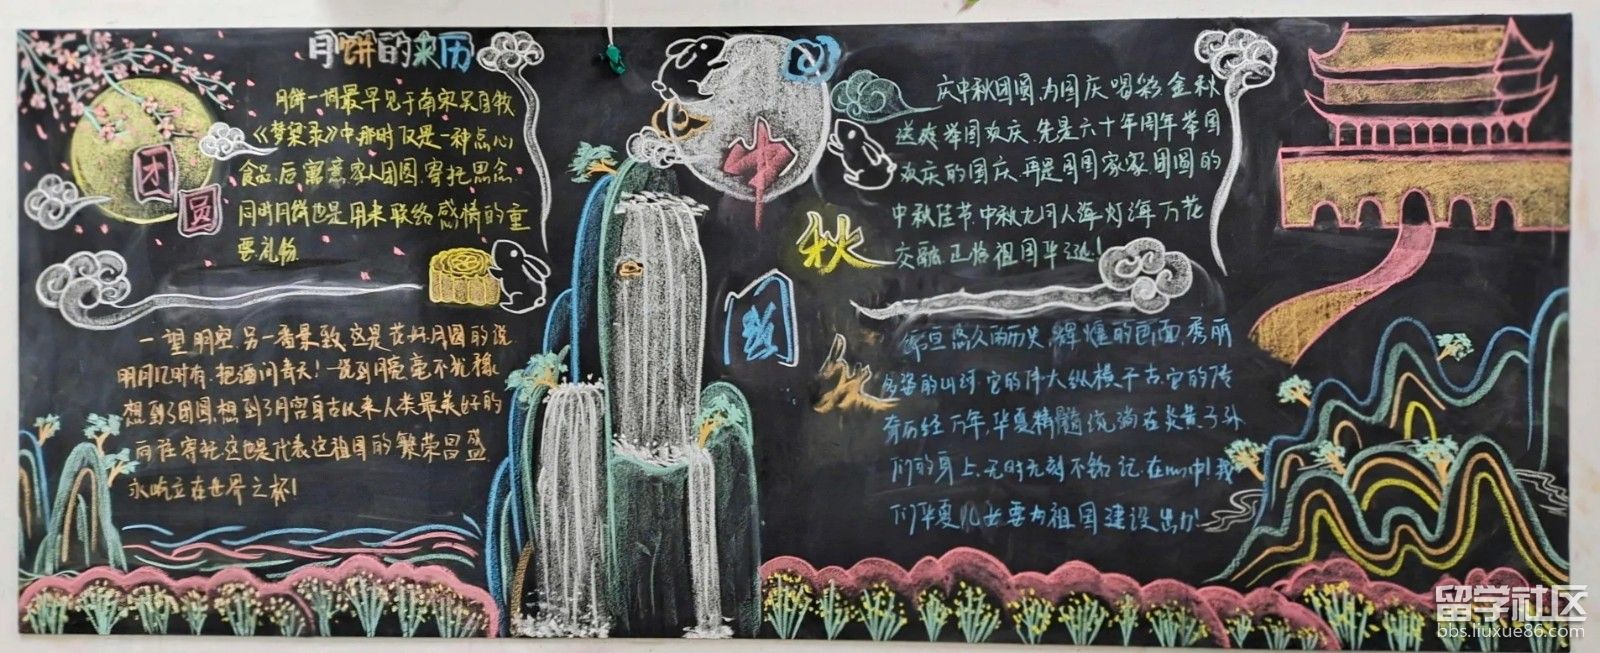 月饼的来历
月饼一词最早见于南宋吴自牧
《梦粱录》中那时仅是一种点心
食品.后寓意家人团圆.寄托思念.
同时月饼也是用来联络感情的重
要.礼物.
团
圆
中
秋
国
庆中秋团圆,为国庆喝彩金秋
送爽举国欢庆.先是六十年周年举国
欢庆的国庆.再是周国家家团圆的
中秋佳节.中秋九月人海灯海万花
交融.正恰祖国华诞!
一望明空另一番景致.这是花好月圆的说
明月几时有.把酒问青天!说到月亮毫不犹豫
想到了团圆.想到了月宫自古以来人类最美好的
向往寄托.这也是代表这祖国的繁荣昌盛
永屹立在世界之杯!
悠久的历史,辉煌的画面,秀丽
多姿的山河.它的伟大纵横千古.它的传
奇历经万年,华夏精髓流淌在炎黄子孙
们的身上.无时无刻不铭记.在心中!我
们华夏儿女要为祖国建设出力!
留学社区
bbs.liuxue86.com